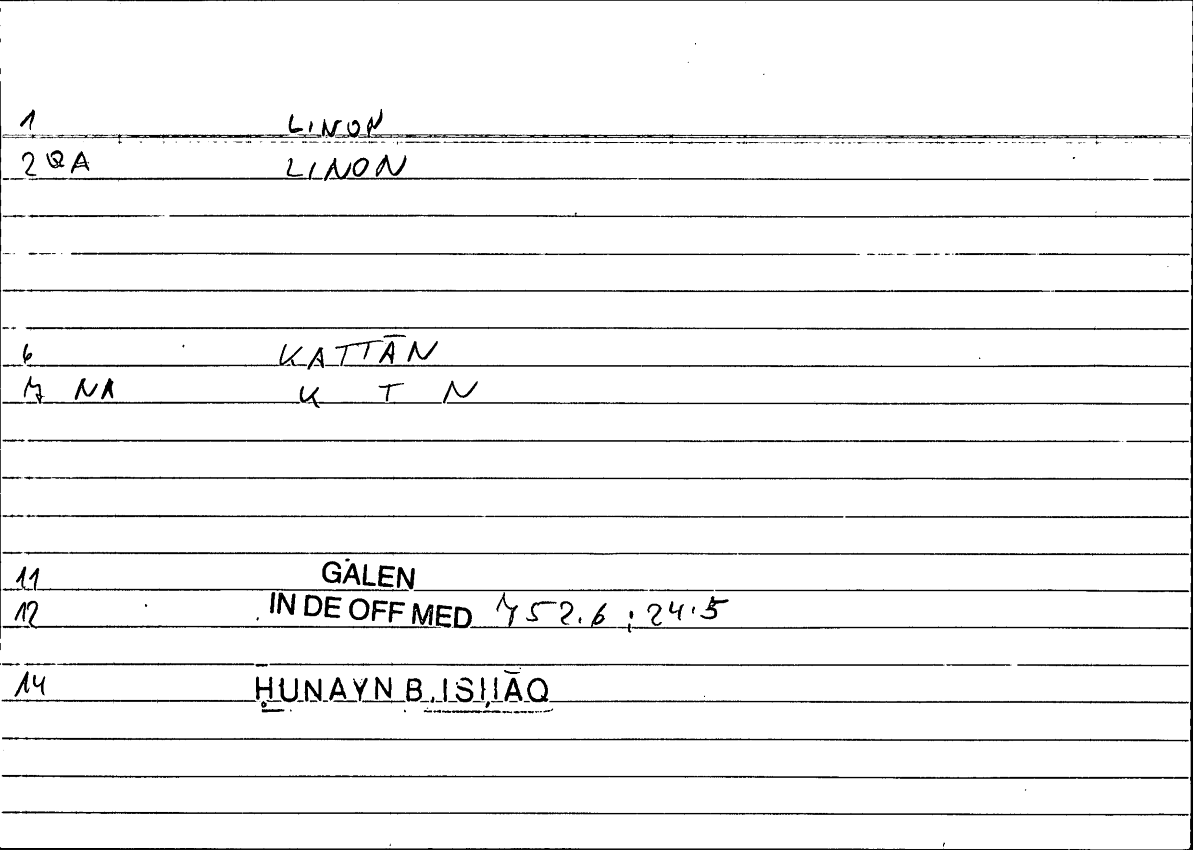 1 LINON
2 QA LINON
6 KATTĀN
7 NA K T N
11 GALEN
12 IN DE OFF MED 752.6 ; 24.5
14 ḤUNAYN B. ISḤĀQ